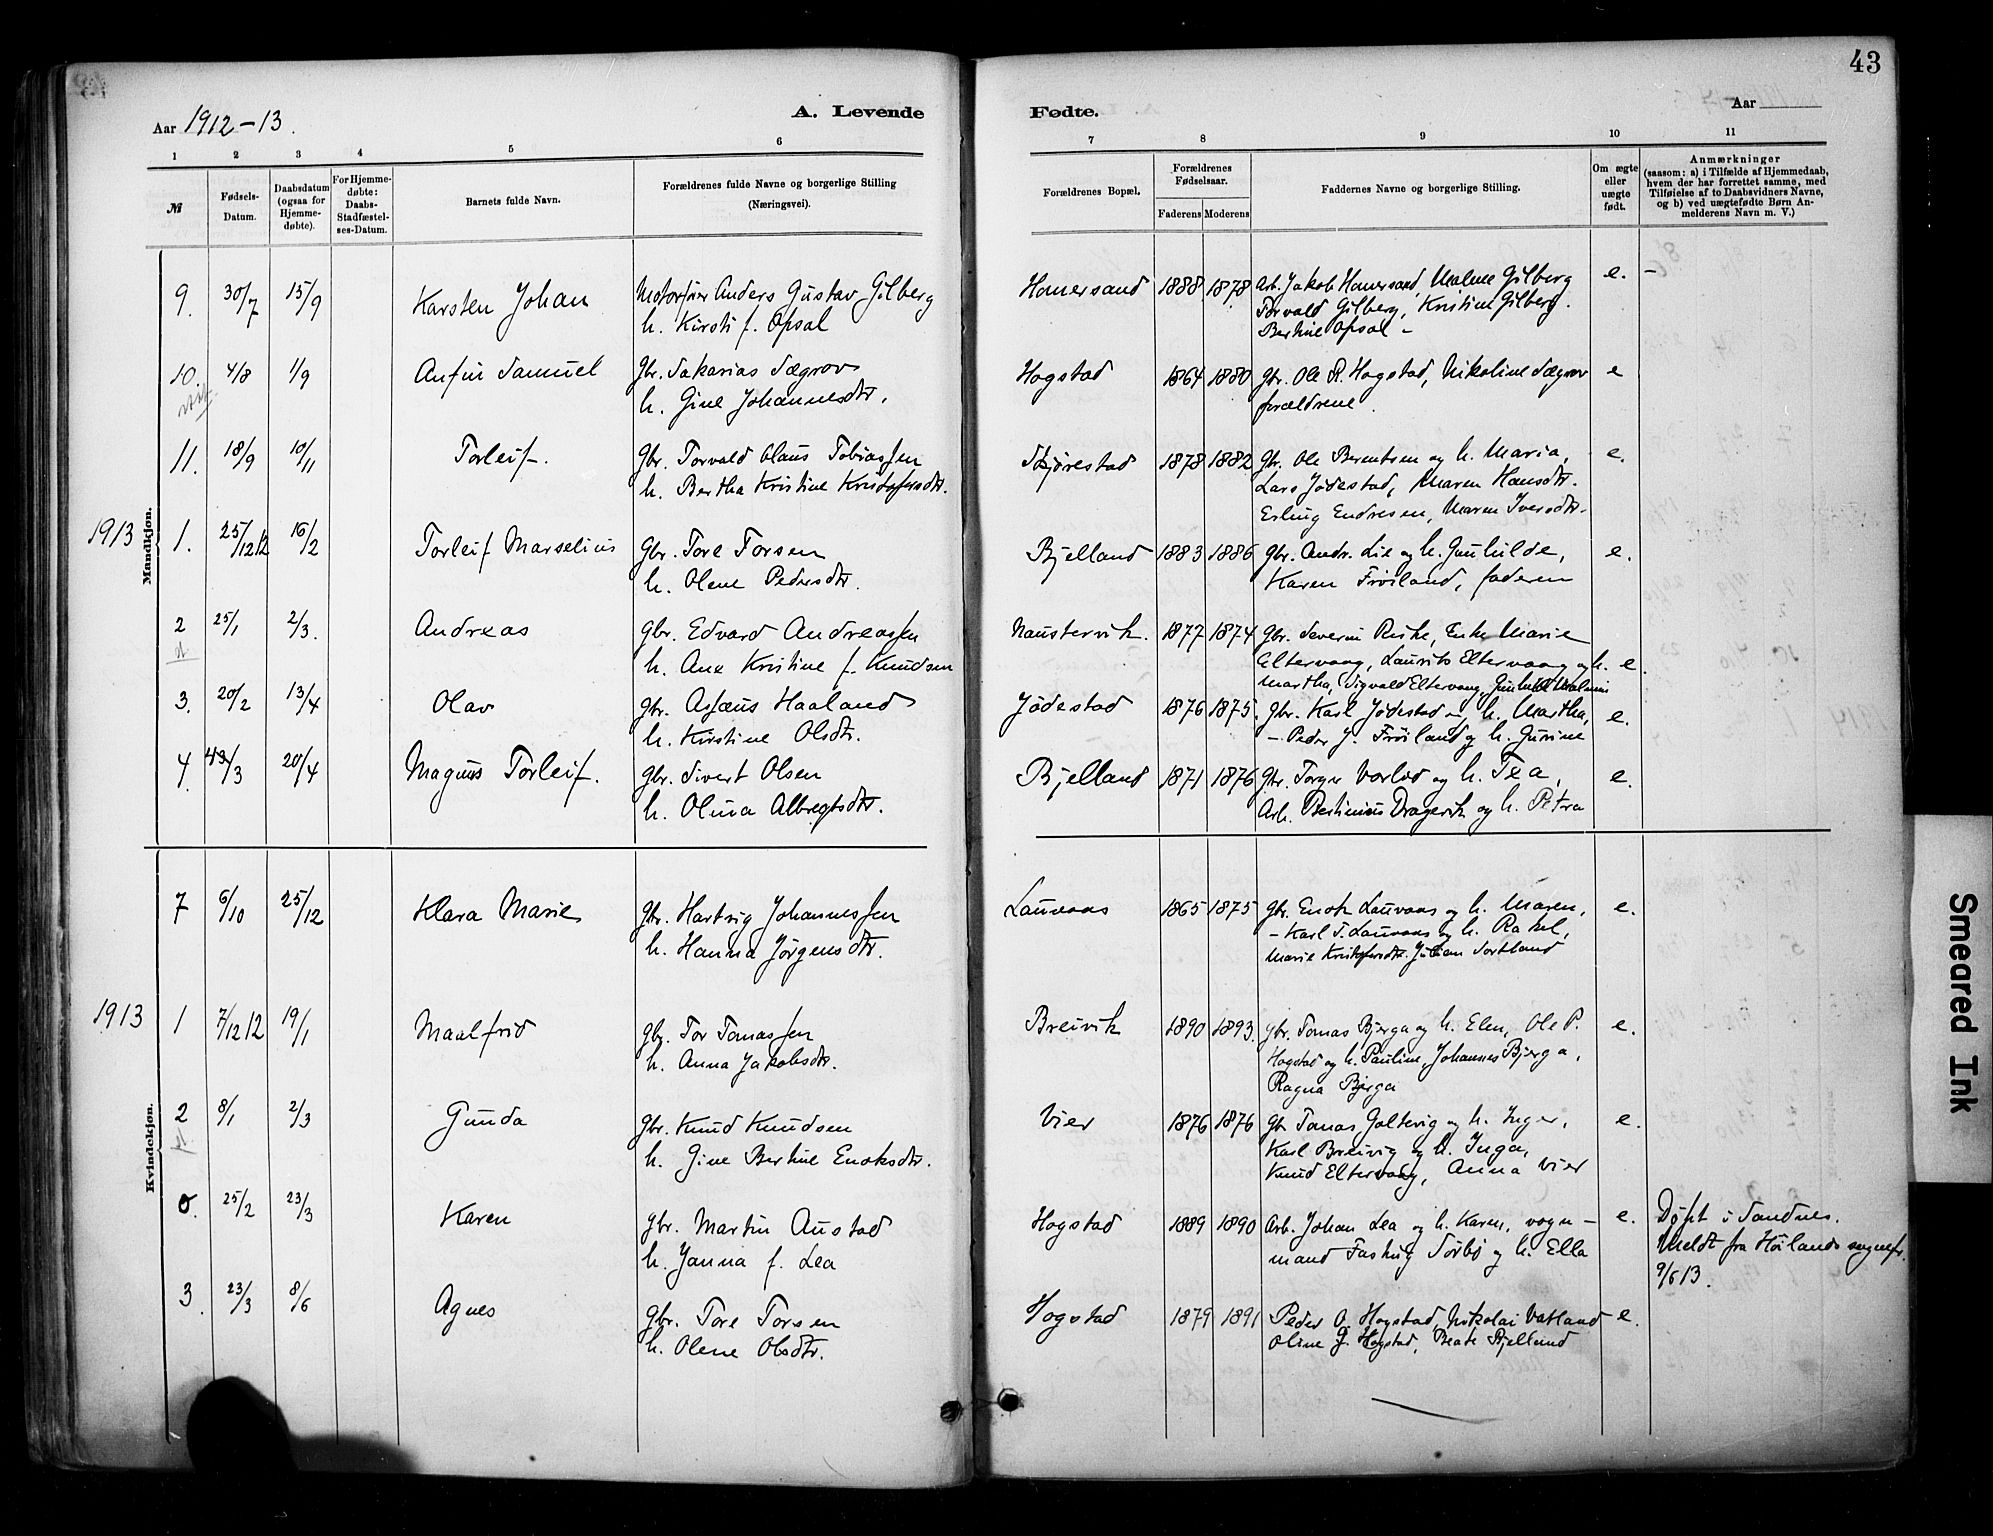 43
Aar 1912-13.
A. Levende
Fødte.
Aar
1 2 3 4 5 6 7 8 9 10 11
№
Fødsels-
Datum.
Daabsdatum
(ogsaa for
Hjemme-
døbte).
For Hjemme-
døbte:
Daabs-
Stadfæstel-
ses-Datum.
Barnets fulde Navn.
Forældrenes fulde Navne og borgerlige Stilling
(Næringsvei).
Forældrenes Bopæl.
Forældrenes
Fødselsaar.
Faderens Moderens
Faddernes Navne og borgerlige Stilling.
Om ægte
eller
uægte
født.
Anmærkninger
(saasom: a) i Tilfælde af Hjemmedaab,
hvem der har forrettet samme, med
Tilføielse af to Daabsvidners Navne,
og b) ved uægtefødte Børn An-
melderens Navn m. V.)
Mandkjøn.
9. 30/7 15/9 Karsten Johan Motorfører Anders Gustav Gilberg
h. Kirsti f. Opsal
Homersand 1888 1878 Arb. Jakob Homersand Malene Gilberg e. -
Torvald Gilberg, Kristine Gilberg.
Bertine Opsal -
10. 4/8 1/9 Anfin Samuel Gbr. Sakarias Sægrov
h. Gine Johannesdtr.
Hogstad 1864 1880 Gbr. Ole R. Hogstad, Nikoline Sægrov e
forældrene.
11. 18/9 10/11 Torleif. Gbr. Torvald Claus Tobiassen
h. Bertha Kristine Kristofersdtr.
Skjørestad 1878 1882 Gbr. Ole Berentsen og h. Maria, e.
Lars Jødestad, Maren Hansdtr.
Erling Endresen, Maren Iversdtr.
1913 1. 25/12 12 16/2 Torleif Marselius Gbr. Tore Torsen
h. Olene Pedersdtr.
Bjelland 1883 1886 Gbr. Andr. Lie og h. Gunhilde, e.
Karen Frøiland, faderen
2 25/1 2/3. Andreas Gbr. Edvard Andreassen
h. Ane Kristine f. Knudsen
Naustervik. 1877 1874 Gbr. Severin Riske, Enke Marie
Eltervaag, Laurits Eltervaag og h. e.
Martha, Sigvald Eltervaag, Gunhild
3. 20/2 13/4 Olav Gbr. Asseus Haaland
h. Kirstine Olsdtr.
Jødestad 1876 1875. Gbr. Karl Jødestad og h. Martha, e.
- Peder J. Frøiland og h. Gurine
4. /3 20/4 Magnus Torleif. Gbr. Sivert Olsen
h. Olina Albregtsdtr.
Bjelland 1871 1876 Gbr. Torger Varlid og h. Tea, e.
Arb. Bertinius Dragevik og h. Petra
Kvindekjøn.
7 6/10 25/12 Klara Marie Gbr. Hartvig Johannessen
h. Hanna Jørgensdtr.
Lauvaas 1865 1875 Gbr. Enok Lauvaas og h. Maren, e.
- Karl T. Lauvaas og h. Rakel,
Marie Kristofersdtr. Julian Sortland
1913 1 7/12 12 19/1 Maalfrid Gbr. Tor Tomassen
h. Anna Jakobsdtr.
Breivik 1890 1893. Gbr. Tomas Bjerga og h. Elen, Ole P. e.
Hogstad og h. Pauline, Johannes Bjerga,
Ragna Bjerga
2 8/1 2/3 Gunda Gbr. Knud Knudsen
h. Gine Bertine Enoksdtr.
Vier 1876 1876 Gbr. Tomas Goltevig og h. Inger, e.
Karl Breivig og h. Inga,
Knud Eltervaag, Anna Vier
0. 25/2 23/3 Karen Gbr. Martin Austad
h. Janna f. Lea
Hogstad 1889 1890 Arb. Johan Lea og h. Karen, vogn- e. Døpt i Sandnes.
mand Fasting Sørbø og h. Ella Meldt fra Høilands sognepr.
9/6 13.
3. 23/3 8/6 Agnes Gbr. Tore Torsen
h. Olene Olsdtr.
Hogstad 1879 1891 Peder O. Hogstad, Nikolai Vatland e.
Oline G. Hogstad, Beate Bjelland
Smeared Ink